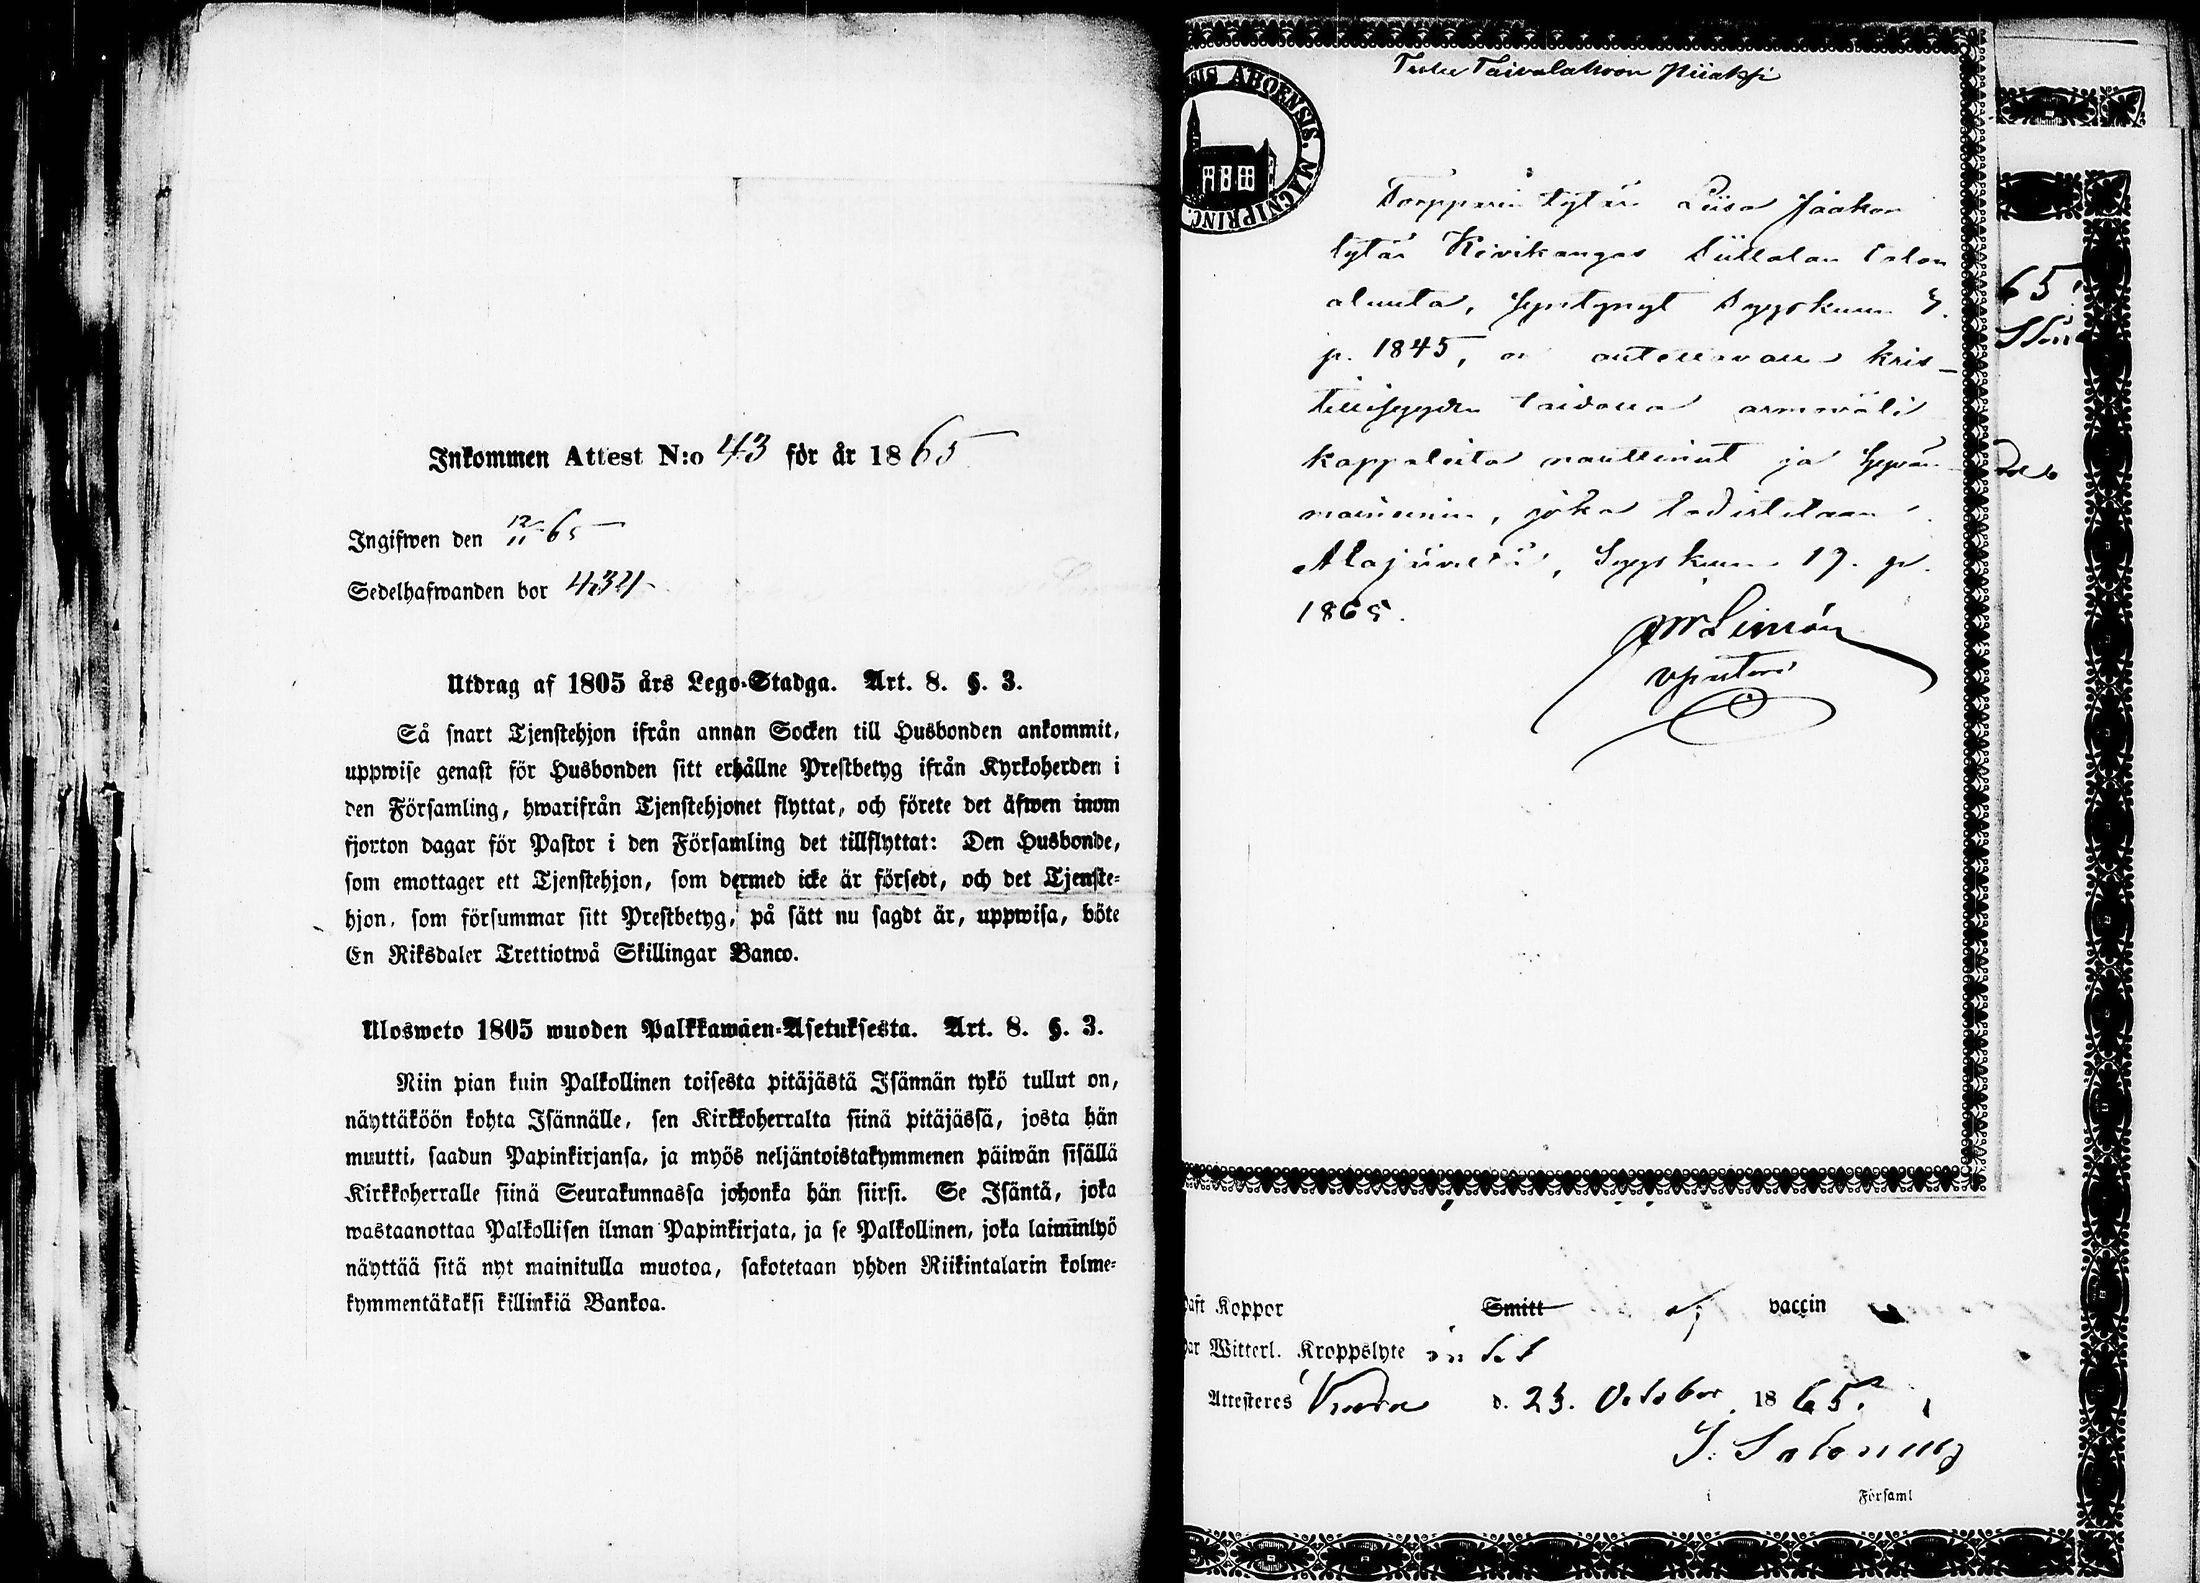 Inkommen Attest N:o 43 för år 1865
Ingifwen den 12/11 65
Sedelhafwanden bor 434
Utdrag af 1805 års Lego-Stadga. Art. 8. §. 3.
Så snart Tjenstehjon ifrån annan Socken till Husbonden ankommit,
uppwise genast för Husbonden sitt erhållne Prestbetyg ifrån Kyrkoherden i
den Församling, hwarifrån Tjenstehjonet flyttat, och förete det äfwen inom
fjorton dagar för Pastor i den Församling det tillflyttat: Den Husbonde,
som emottager ett Tjenstehjon, som dermed icke är försedt, och det Tjenste-
hjon, som försummar sitt Prestbetyg, på sätt nu sagdt är, uppwisa, böte
En Riksdaler Trettiotwå Skillingar Banco.
Ulosweto 1805 wuoden Palkkawäen-Asetuksesta. Art. 8. §. 3.
Niin pian kuin Palkollinen toisesta pitäjästä Isännän tykö tullut on,
näyttäköön kohta Isännälle, sen Kirkkoherralta siinä pitäjässä, josta hän
muutti, saadun Papinkirjansa, ja myös neljäntoistakymmenen päiwän sisällä
Kirkkoherralle siinä Seurakunnassa johonka hän siirsi. Se Isäntä, joka
wastaanottaa Palkollisen ilman Papinkirjata, ja se Palkollinen, joka laiminlyö
näyttää sitä nyt mainitulla muotoa, sakotetaan yhden Riikintalarin kolme-
kymmentäkaksi killinkiä Bankoa.
SIS ABOENSIS. MAGNIPRINC.
Torpparin tytär Liisa Jaakon
tytär Kivikangas talon
alusta, syntynyt Syyskuun
p. 1845, on autettavalla kris-
tillisyyden taidolla armowäli
kappaleita nauttinut ja hywän
maineinen, joka todistetaan
Alajärveltä, Syyskuun 19. p.
1865.
65.
aft Koppor Smitt af vaccin
ar Witterl. Kroppslyte intet
Attesteres d. 23. October 1865.
S. Salonius
i Församl